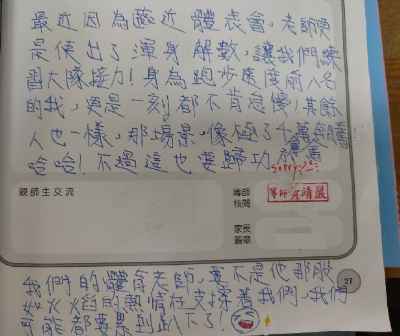 最近因為臨近體表會，老師更
是使出了渾身解數，讓我們練
習大隊接力！身為跑步速度前八名
的我，更是一刻都不肯怠慢，其餘
人也一樣，那場景，像極了十萬
哈哈！不過這也要歸功於
sorry
親師生交流
導師
核閱
導師 清晨
家長
簽章
27
我們的體育老師，要不是他那股
如火焰的熱情在支撐著我們，我們
可能都要累到趴下了！